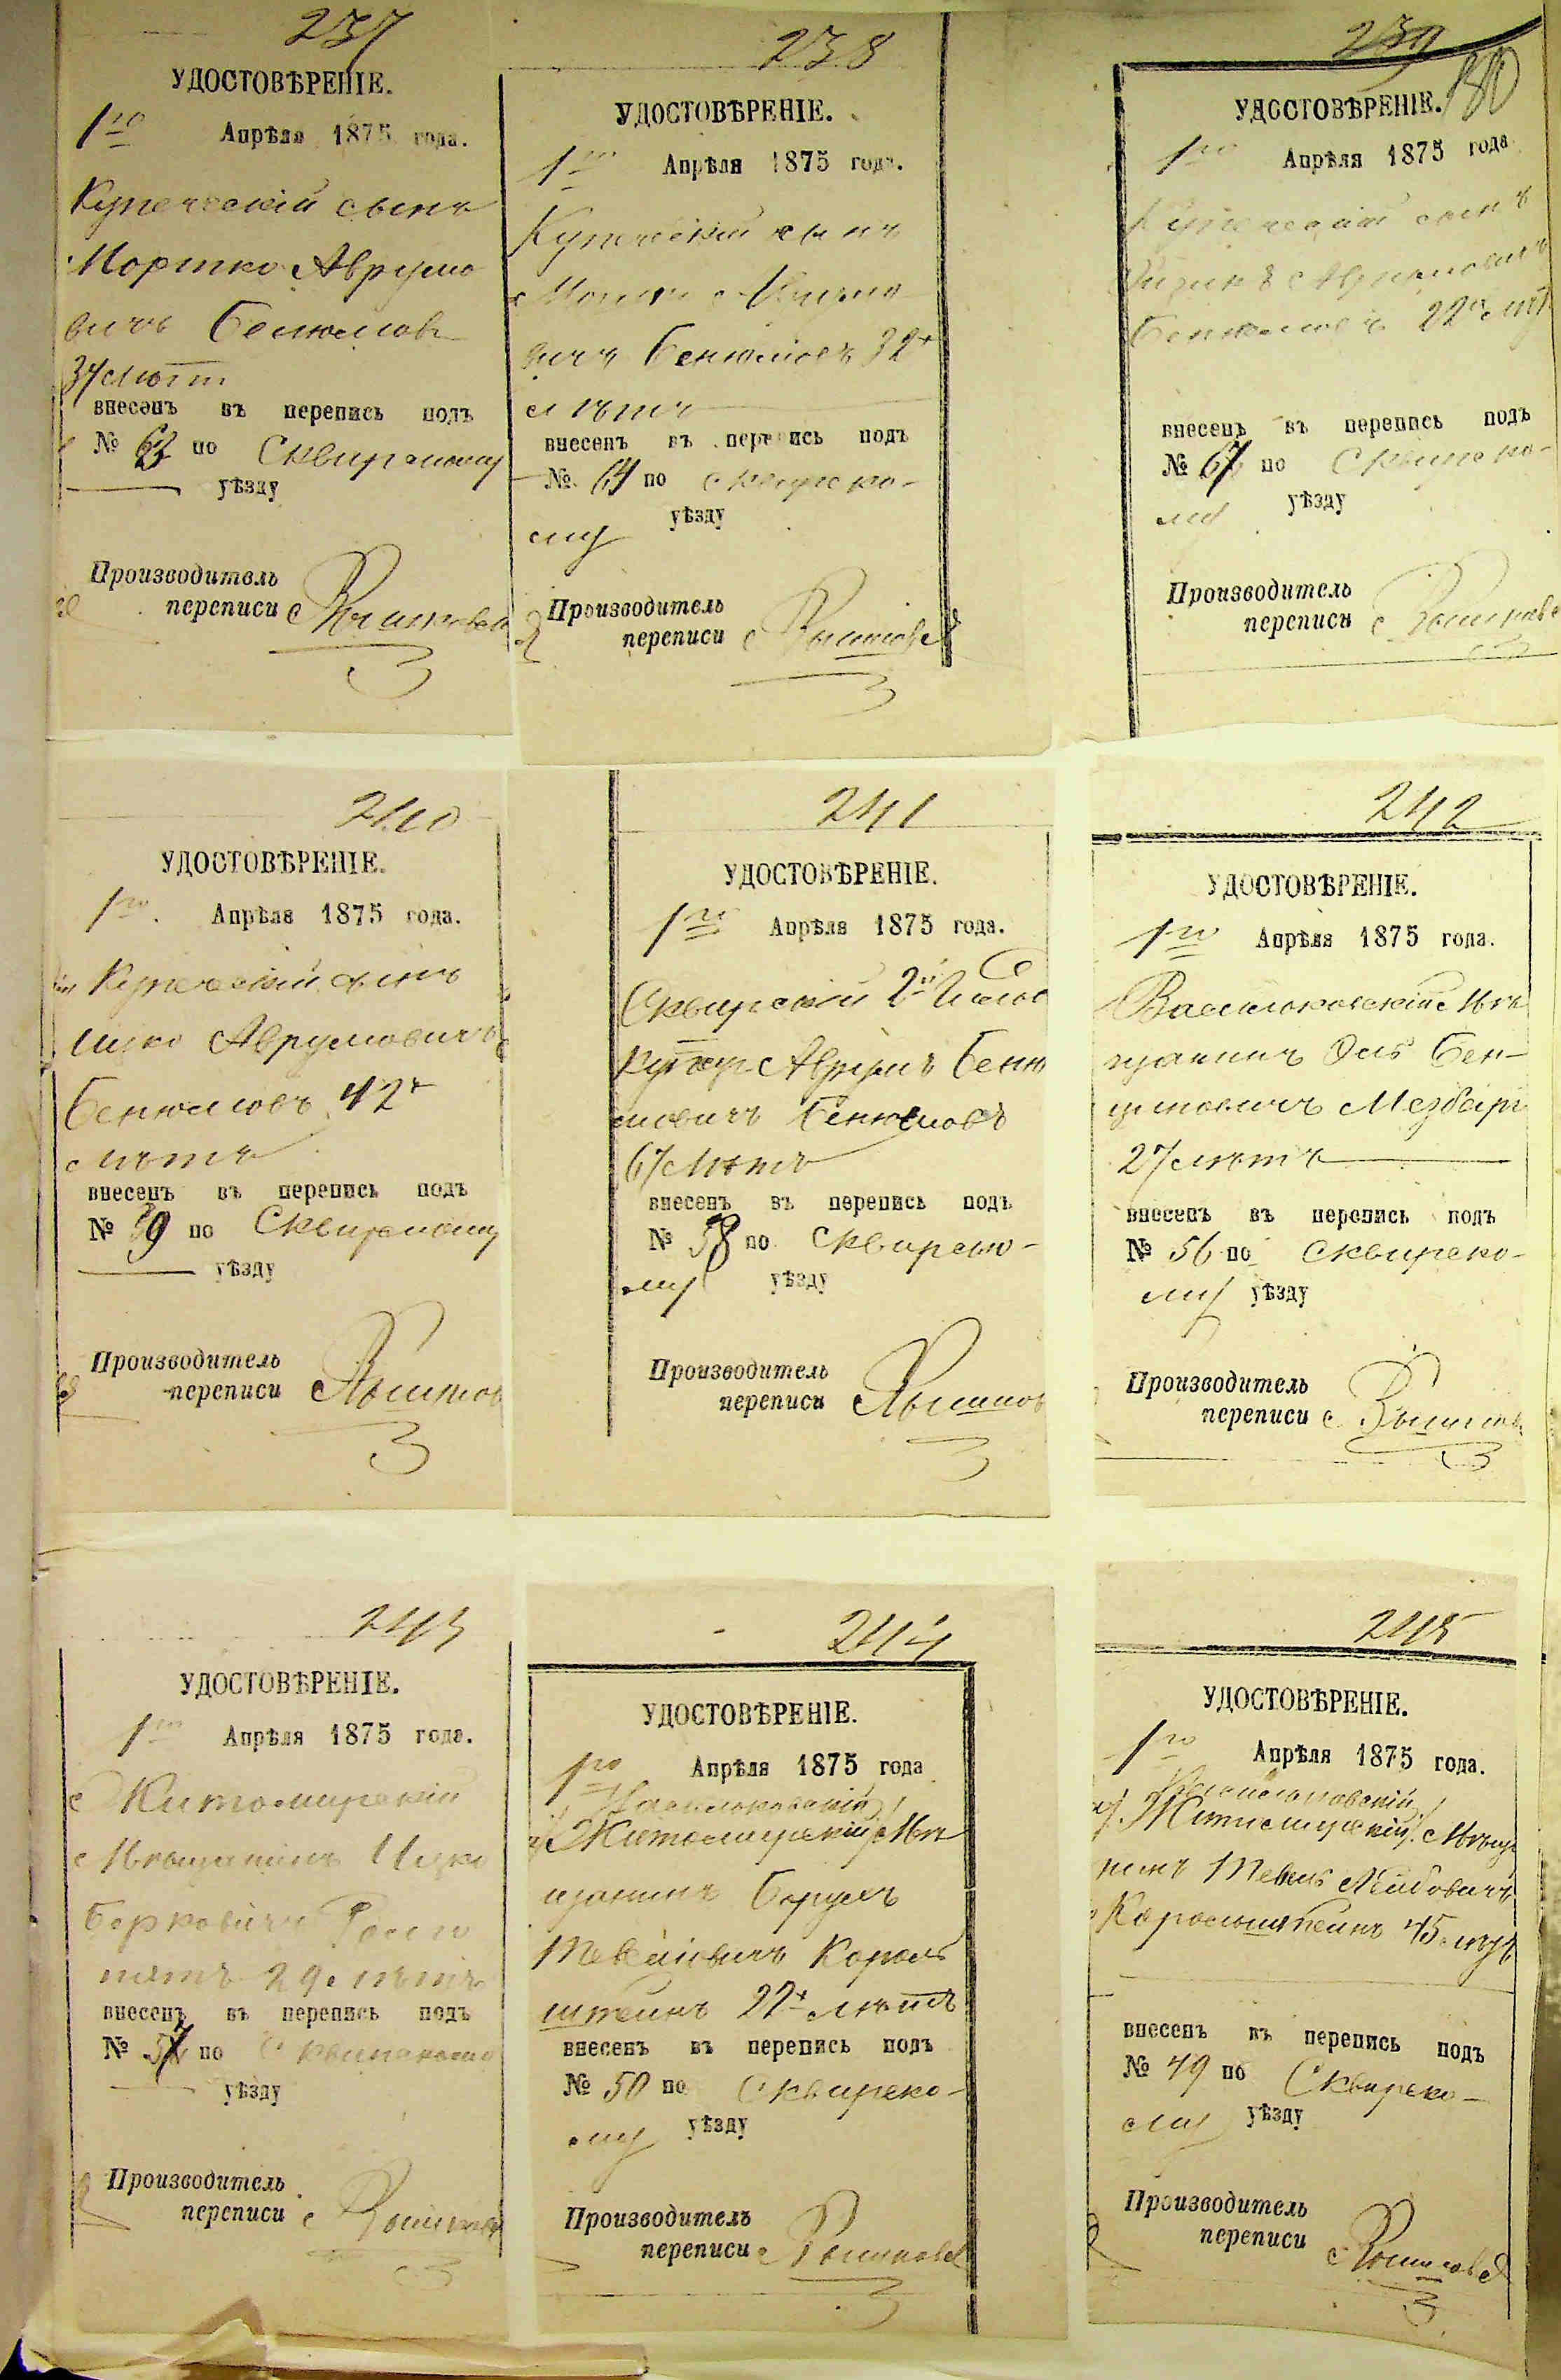 237
УДОСТОВѢРЕНІЕ.
1го Апрѣля 1875 года.
Купеческій сынъ
Мортко Аврумо
вичъ Бенюмов
34 лѣтъ
внесенъ въ перепись подъ
№ 63 по Сквирскому
уѣзду
Производитель
переписи
238
УДОСТОВѢРЕНІЕ.
1го Апрѣля 1875 года.
Купеческій сынъ
Аврумо
вичъ Бенюмовъ 32х
лѣтъ
внесенъ въ перепись подъ
№ 64 по Сквирско-
му уѣзду
Производитель
переписи
239
180
УДОСТОВѢРЕНІЕ.
1го Апрѣля 1875 года
Купеческій сынъ
Аврумовичъ
Бенюмовъ 22х лѣтъ
внесенъ въ перепись подъ
№ по Сквирско-
му уѣзду
Производитель
переписи
240
УДОСТОВѢРЕНІЕ.
1го Апрѣля 1875 года.
Купеческій сынъ
Ицко Аврумовичъ
Бенюмовъ 42х
лѣтъ
внесенъ въ перепись подъ
№ 59 по Сквирскому
уѣзду
Производитель
переписи
241
УДОСТОВѢРЕНІЕ.
1го Апрѣля 1875 года.
Сквирскій 2й Гильд
Купец Аврумъ Беню
мовичъ Бенюмовъ
67 лѣтъ
внесенъ въ перепись подъ
№ 58 по Сквирско-
му уѣзду
Производитель
переписи
242
УДОСТОВѢРЕНІЕ.
1го Апрѣля 1875 года.
Васильковскій Мѣ
щанинъ Бен-
ціоновичъ
27 лѣтъ
внесенъ въ перепись подъ
№ 56 по Сквирско-
му уѣзду
Производитель
переписи
243
УДОСТОВѢРЕНІЕ.
1го Апрѣля 1875 года.
Житомирскій
Мѣщанинъ Ицко
Берковичъ
29 лѣтъ
внесенъ въ перепись подъ
№ по Сквирскому
уѣзду
Производитель
переписи
244
УДОСТОВѢРЕНІЕ.
1го Апрѣля 1875 года
Васильковскій
Житомирскій Мѣ
щанинъ Борухъ
Тевелевичъ Король
штейнъ 22х лѣтъ
внесенъ въ перепись подъ
№ 50 по Сквирско-
му уѣзду
Производитель
переписи
245
УДОСТОВѢРЕНІЕ.
1го Апрѣля 1875 года.
Васильковскій
Житомирскій Мѣща
нинъ Тевель Лейбовичъ
Корольштейнъ 45 лѣтъ
внесенъ въ перепись подъ
№ 49 по Сквирско-
му уѣзду
Производитель
переписи